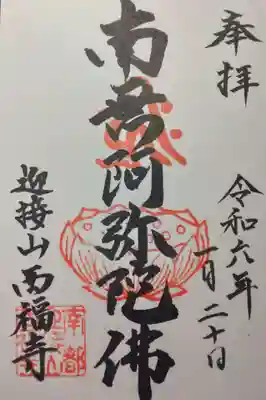 奉拝
令和六年
一月二十日
南无阿弥陀佛
迎接山西福寺